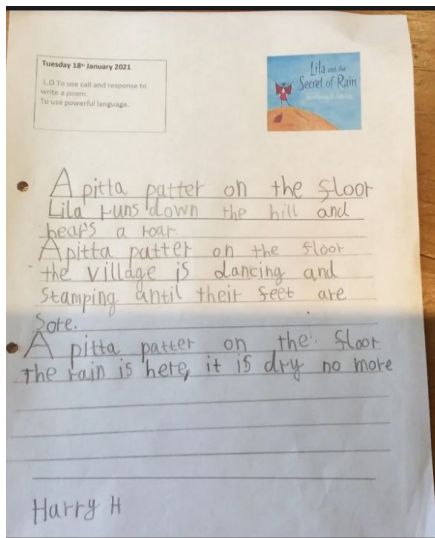 Tuesday 18th January 2021
L.O To use call and response to
write a poem.
To use powerful language.
Lila and the
Secret of Rain
A pitta patter on the floor
Lila runs down the hill and
hears a roar.
A pitta patter on the floor
the village is dancing and
stamping antil their feet are
sore.
A pitta patter on the floor
The rain is here, it is dry no more
Harry H